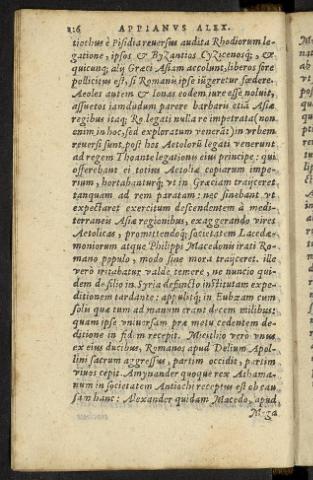 226 APPIANVS ALEX.
tiochus è Pisidia reuersus audita Rhodiorum le-
gatione, ipsos & Byzantios Cyzicenosq́;, &
quicunq; alij Græci Asiam accolunt, liberos fore
pollicitus est, si Romanis ipse iũgeretur fœdere.
Aeoles autem & Ionas eodem iure esse noluit,
assuetos iamdudum parere barbaris etiã Asiæ
regibus itaq; Ro. legati nulla re impetrata (non
enim in hoc, sed exploratum venerãt) in vrbem
reuersi sunt, post hos Aetolorũ legati venerunt
ad regem Thoante legationis eius principe: qui
offerebant ei totius Aetoliæ copiarum impe-
rium, hortabanturq́; vt in Græciam traijceret
tanquam ad rem paratam: nec sinebant vt
expectaret exercitum descendentem à medi-
terraneis Asiæ regionibus, exaggerando vires
Aetolicas, promittendoq́; societatem Lacedæ-
moniorum atque Philippi Macedonis irati Ro-
mano populo, modo sine mora traijceret. ille
verò irritabatur valde temere, ne nuncio qui-
dem de filio in Syria defuncto institutam expe-
ditionem tardante: appulitq́; in Eubœam cum
solis quæ tum ad manum erant decem milibus:
quam ipse vniuersam præ metu cedentem de-
ditione in fidem recepit. Micithio verò vnus
ex eius ducibus, Romanos apud Delium Apol-
lini sacrum aggressus, partim occidit, partim
viuos cepit. Amynander quoque rex Athama-
num in societatem Antiochi receptus est ob cau
sam hanc: Alexander quidam Macedo, apud
Mega